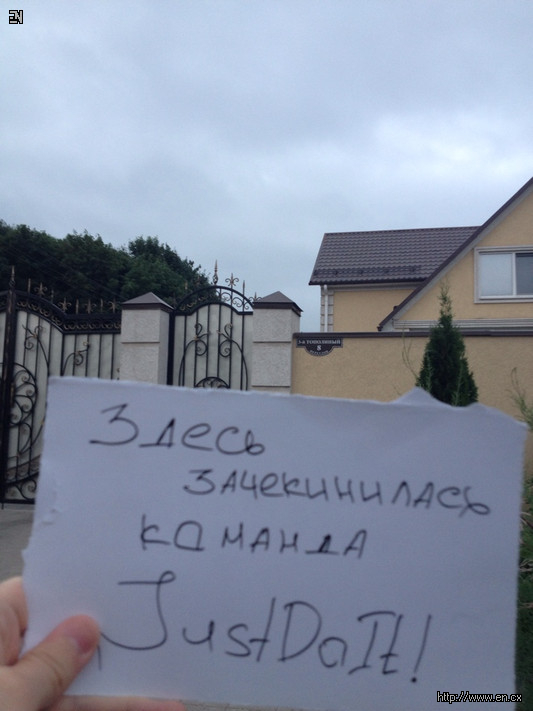 EN
1-й ТОПОЛИНЫЙ
8
Здесь
зачекинилась
команда
JustDoIt!
http://www.en.cx